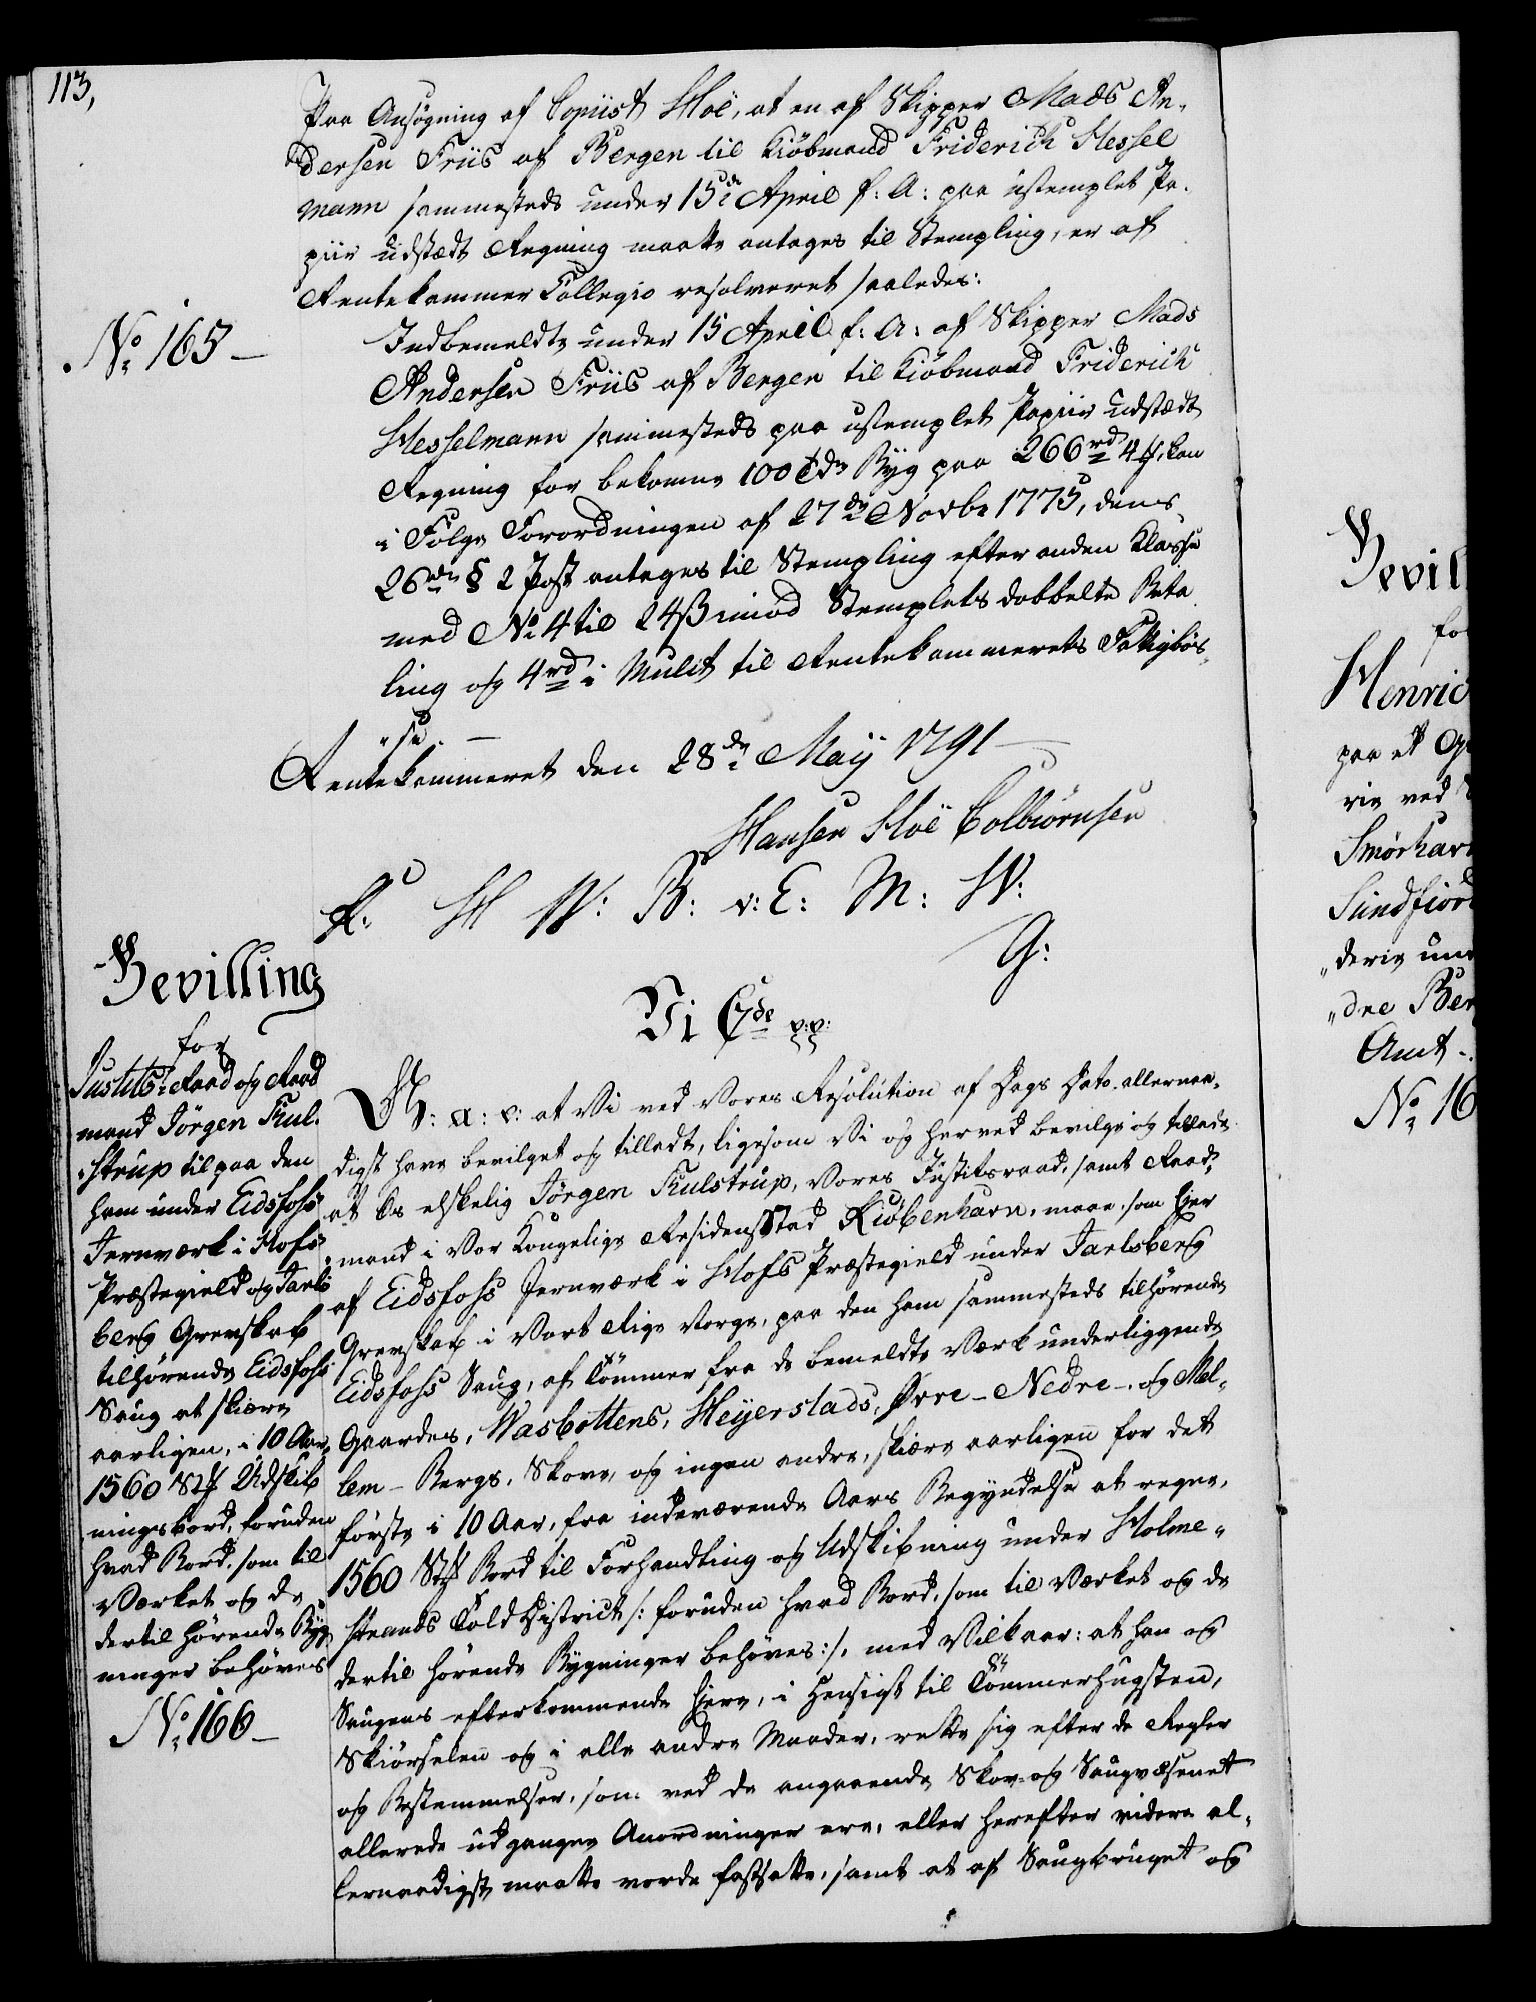 113,
Paa Ansøgning af Copiist Hoë, at en af Skipper Mads An-
dersen Friis af Bergen til Kiöbmand Friderich Hessel
mann sammesteds under 15de April f: A: paa ustemplet Pa-
piir udstædt Regning maatte antages til Stempling, er af
Rentekammer Collegio resolveret saaledes:
No. 165 —
Indbemeldte under 15 April f: A: af Skipper Mads
Andersen Friis af Bergen til Kiöbmand Friderich
Hesselmann sammesteds paa ustemplet Papiir udstædt
Regning for bekomne 100 Tdr Byg paa 266rd 4 ß, kan
i Følge Forordningen af 27de Novbr 1775, dens
26de § 2 Post antages til Stempling efter anden Klasse
med No. 4 til 24 ß imod Stemplets dobbelte Beta
ling og 4rd i Mulct til Rentekammerets Fattigbös-
„se. —
Rentekammeret den 28de Maij 1791 —
Hansen Hoë Colbiörnsen
R: H W: B: v: E: M: W:
G:
Bevilling
for
Justits-Raad og Raad
mand Jörgen Kul-
„strup til paa den
ham under Eidsfoss
Jernværk i Hofs
Præstegield og Jarls
berg Grevskab
tilhørende Eidsfoss
Saug at skiære
aarligen, i 10 Aar,
1560 St Udskib
ningsbord, foruden
hvad Bord, som til
Værket og de
dertil hørende Byg
ninger behøves
No. 166 —
Vi C7de p:p:
G: A: V: at Vi ved Vores Resolution af Dags Dato allernaa-
digst have bevilget og tilladt, ligesom Vi og herved bevilge og tillade
at Os elskelig Jörgen Kulstrup, Vores Justitsraad, samt Raad-
mand i Vor Kongelige Residens Stad Kiöbenhavn, maae, som Ejer
af Eidsfoss Jernværk i Hofs Præstegield under Jarlsberg
Grevskab i Vort Rige Norge, paa den ham sammesteds tilhørende
Eidsfoss Saug, af Tömmer fra de bemeldte Værk underliggende
Gaardes, Wasbottens, Heyerstads, Øvre - Nedre - og Mel-
lem - Bergs, Skove, og ingen andre, skiære aarligen for det
første i 10 Aar, fra indeværende Aars Begyndelse at regne,
1560 St Bord til Forhandling og Udskibning under Holme-
strands Told District /: foruden hvad Bord, som til Værket og de
dertil hørende Bygninger behøves :/ med Vilkaar: at han og
Saugens efterkommende Ejere, i Hensigt til Tömmerhugsten,
Skiörselen og i alle andre Maader, rette sig efter de Regler
og Bestemmelser, som ved de angaaende Skov- og Saugvæsenet
allerede udgangne Anordninger ere, eller herefter videre al-
lernaadigst maatte vorde fastsatte, samt at af Saugbruget og
Bevil
for
Henric
paa et
rie ved
Smørhavn
Sundfiord
„derie und
„dre Ber
Amt -
No. 16